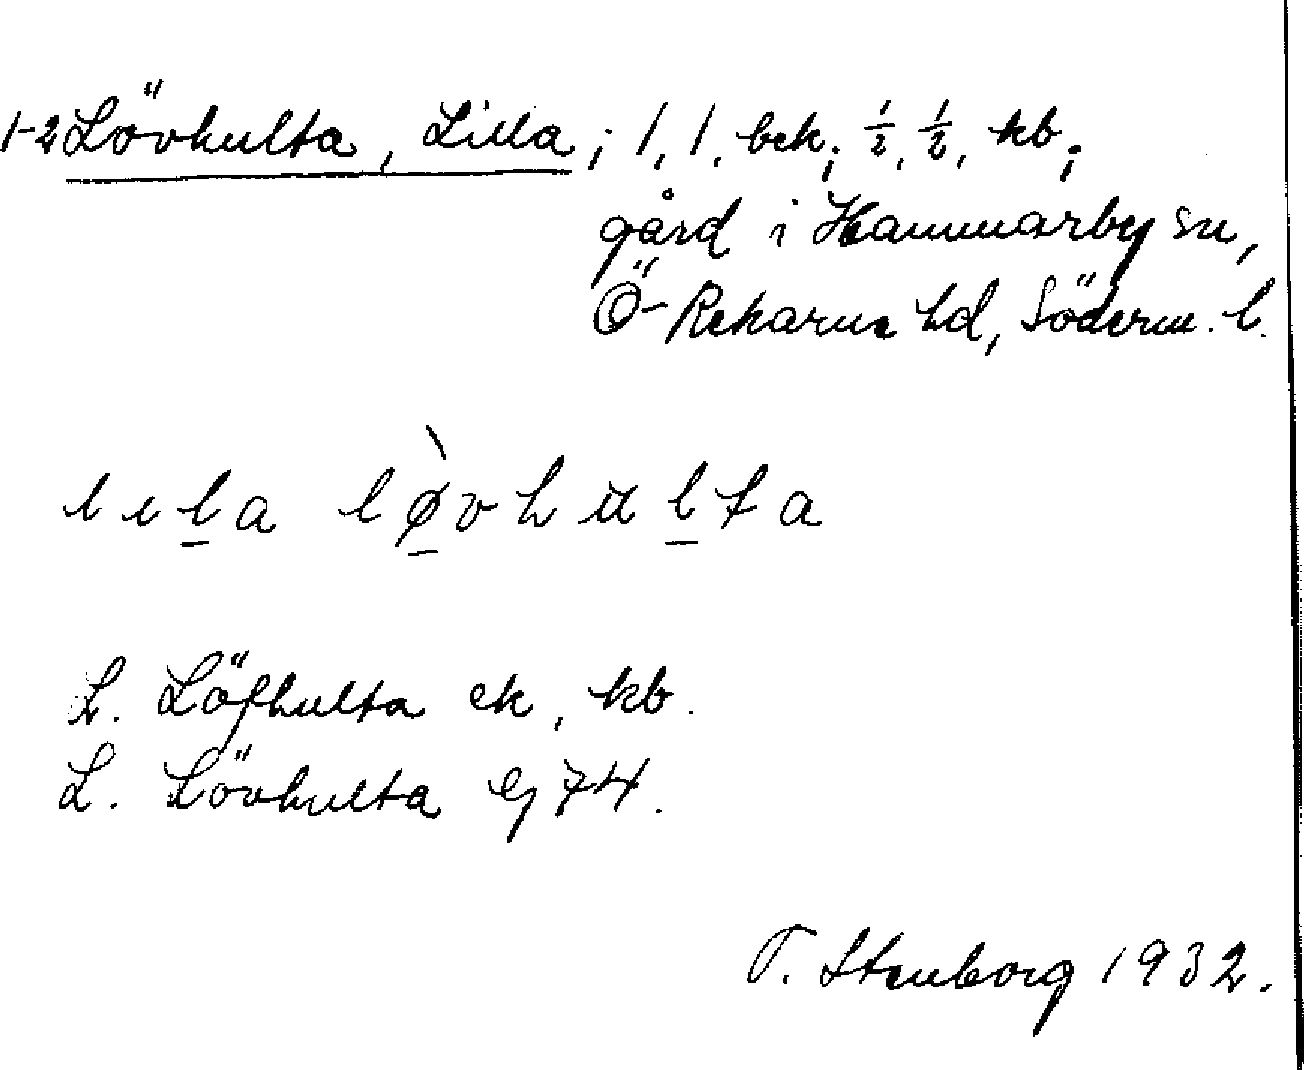 1-2 Lövhulta, Lilla; 1, 1, bek; ½, ½, kb;
gård i Hammarby sn,
Ö-Rekarne hd, Söderm. l.
lıl̲a lø̲̀vhul̲ta
L. Löfhulta ek, kb.
L. Lövhulta Gj 74.
T. Stenborg 1932.